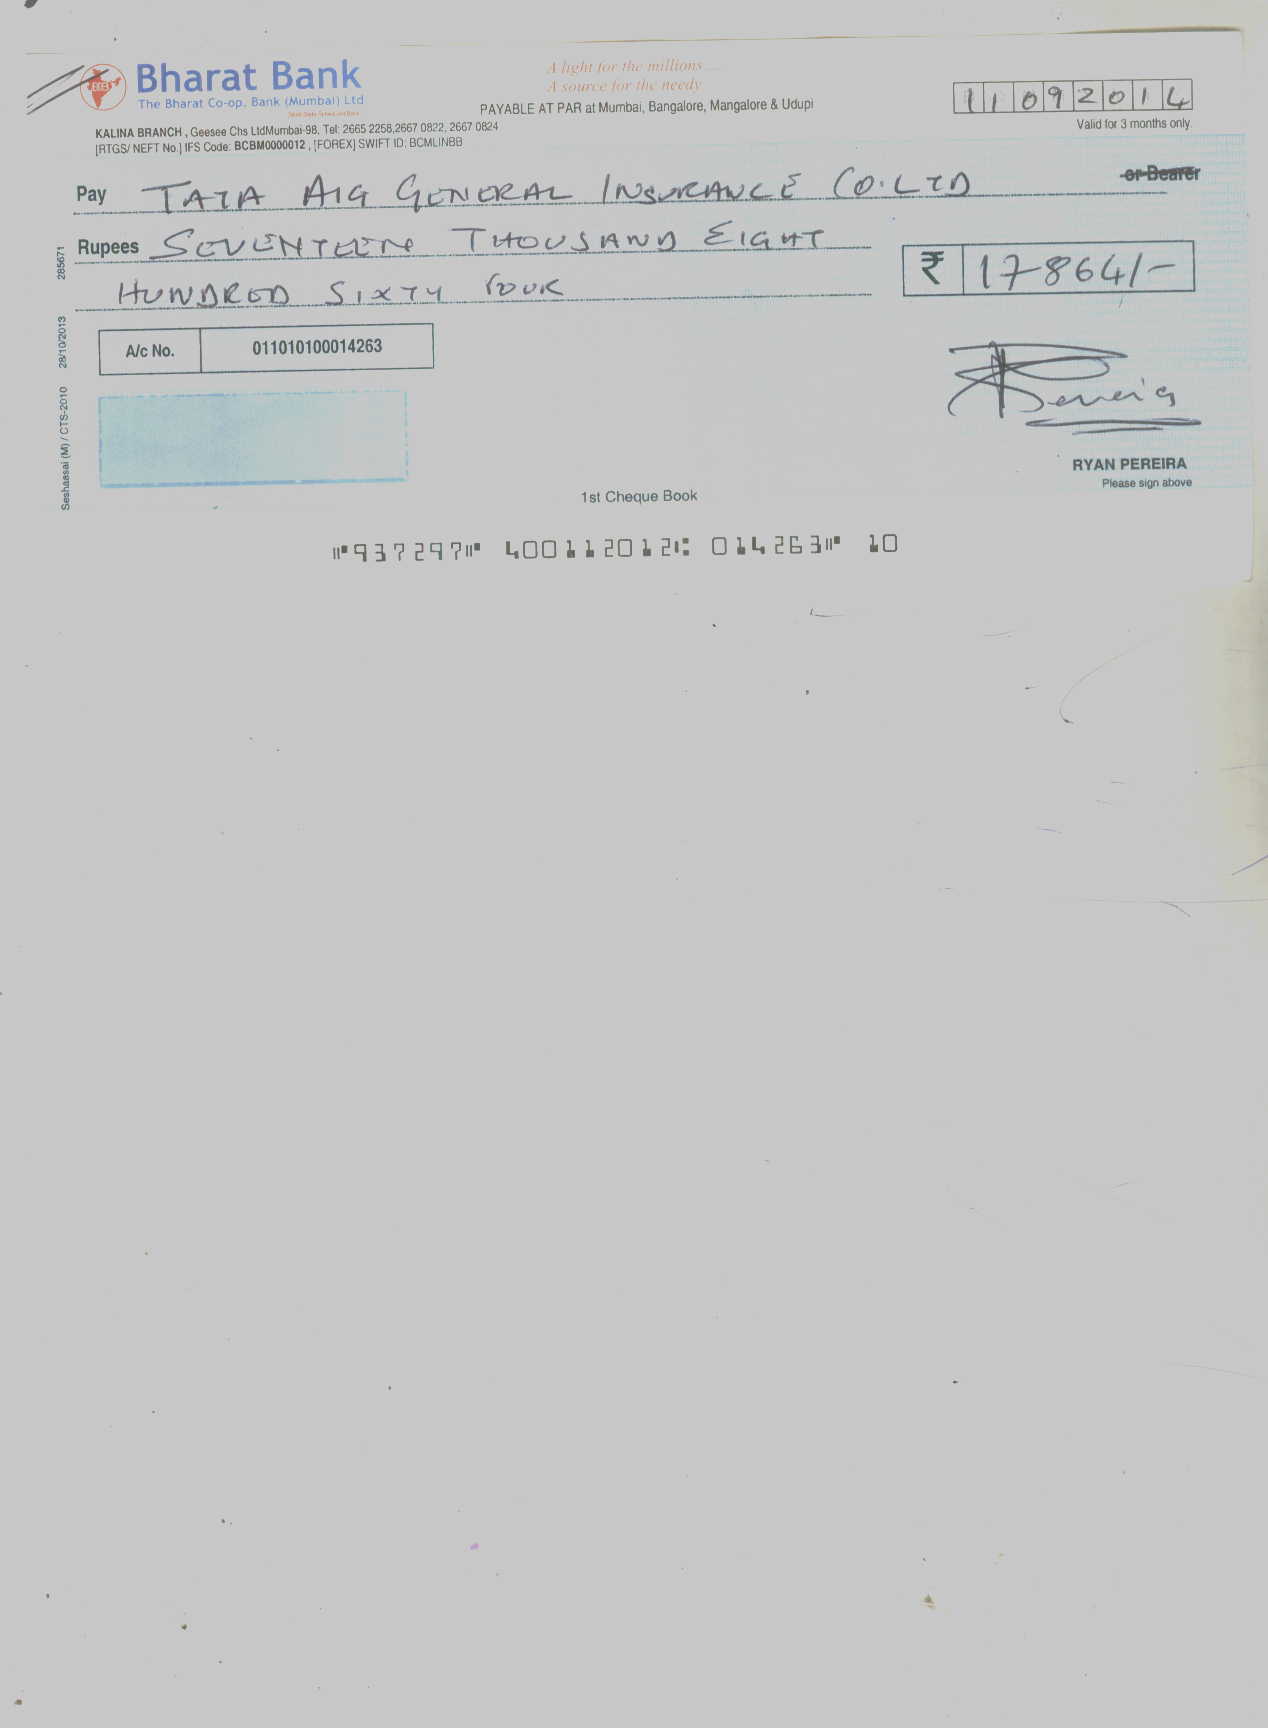 Bharat Bank
The Bharat Co-op. Bank (Mumbai) Ltd
A light for the millions.....
A source for the needy
PAYABLE AT PAR at Mumbai, Bangalore, Mangalore & Udupi
11092014
Valid for 3 months only.
KALINA BRANCH , Geesee Chs LtdMumbai-98, Tel: 2665 2258,2667 0822, 2667 0824
[RTGS/ NEFT No.] IFS Code: BCBM0000012 , [FOREX] SWIFT ID: BCMLINBB
Pay TATA AIG GENERAL INSURANCE CO. LTD or Bearer
Rupees SEVENTEEN THOUSAND EIGHT
HUNDRED SIXTY FOUR
₹ 17864/-
A/c No. 011010100014263
Pereira
RYAN PEREIRA
Please sign above
1st Cheque Book
Seshaasai (M) / CTS-2010 28/10/2013 285671
⑈937297⑈ 400112012⑆ 014263⑈ 10